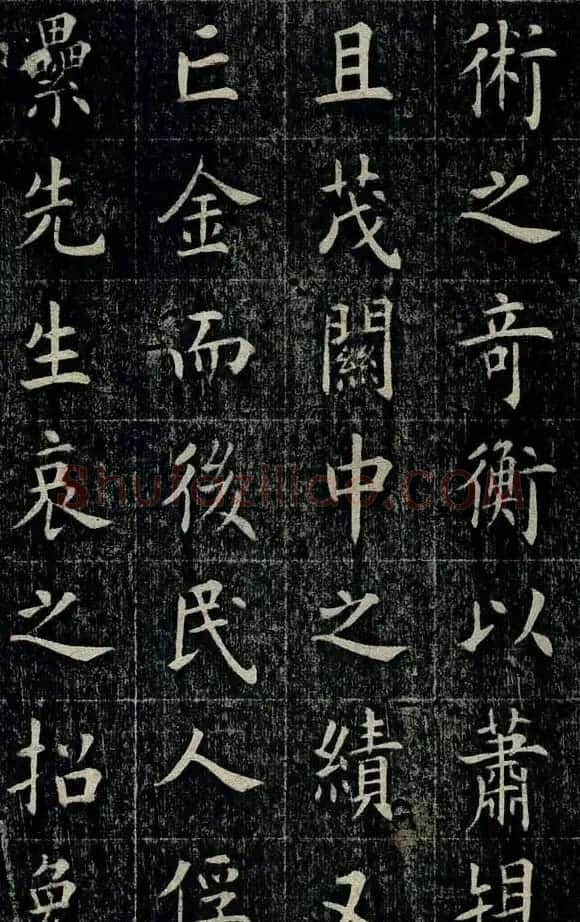 術之竒衡以蕭
且茂關中之績又
亡金而後民人俘
纍先生哀之招
Shufaziliao.COM